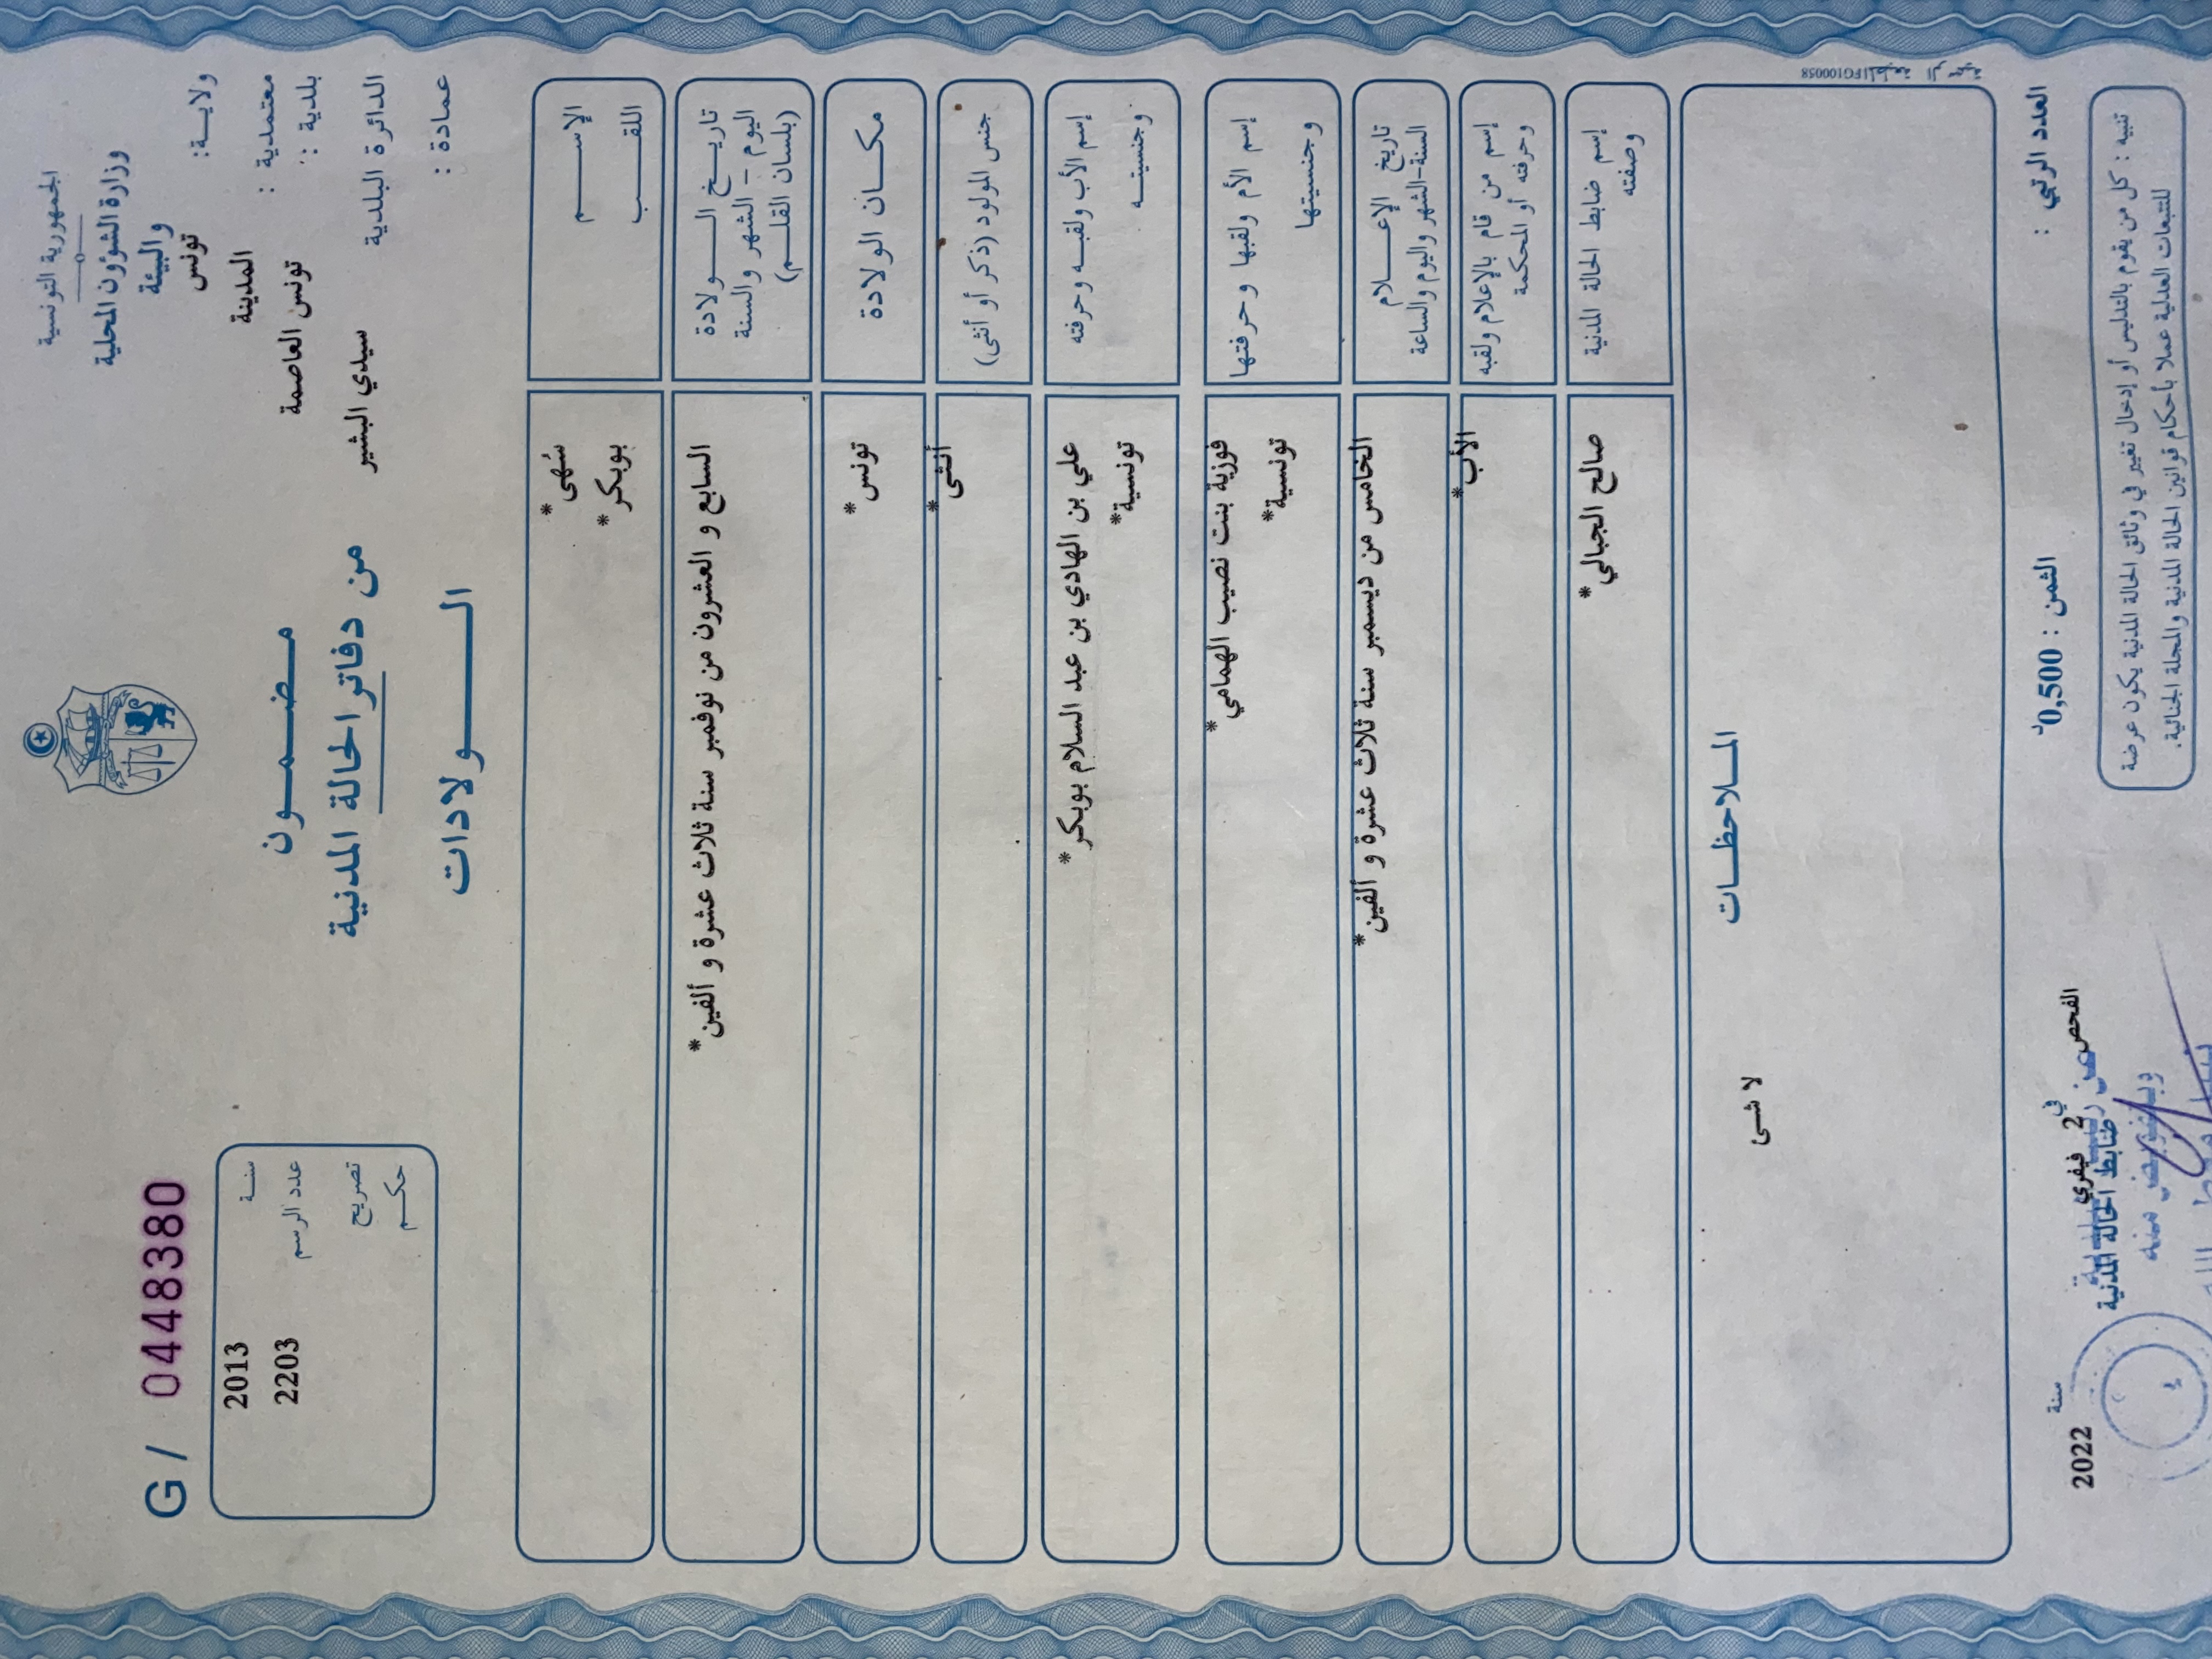 الجمهورية التونسية
وزارة الشؤون المحلية
والبيئة
ولايـــة: تونس
معتمدية : المدينة
بلدية : تونس العاصمة
الدائرة البلدية سيدي البشير
عمادة :
G / 0448380
سنـــة 2013
عدد الرسم 2203
تصريح
حكـــم
مـضـــمـــون
من دفاتر الحالة المدنية
الـــــولادات
الإســــــم سُهى*
اللقـــــب بوبكر*
تاريـــخ الـــــولادة السابع و العشرون من نوفمبر سنة ثلاث عشرة و ألفين*
اليوم – الشهر والسنة
(بلسان القلـــم)
مكـــان الولادة تونس*
جنس المولود (ذكر أو أنثى) أنثى*
إسم الأب ولقبـــه وحرفته علي بن الهادي بن عبد السلام بوبكر*
وجنسيتـــه تونسية*
إسم الأم ولقبها وحرفتها فوزية بنت نصيب الهمامي*
وجنسيتها تونسية*
تاريخ الإعـــــلام الخامس من ديسمبر سنة ثلاث عشرة و ألفين*
السنة-الشهر واليوم والساعة
إسم من قام بالإعلام ولقبه الأب*
وحرفته أو المحكمة
إسم ضابط الحالة المدنية صالح الجبالي*
وصفته
الملاحظـــات
لا شىء
المطبعة الرسمية FG100058
العدد الرتبي :
الثمن : 0,500د
في 2 فيفري سنة 2022
ضابط الحالة المدنية
وبتفويض منه
تنبيه : كل من يقوم بالتدليس أو إدخال تغيير في وثائق الحالة المدنية يكون عرضة
للتتبعات العدلية عملا بأحكام قوانين الحالة المدنية والمجلة الجنائية.